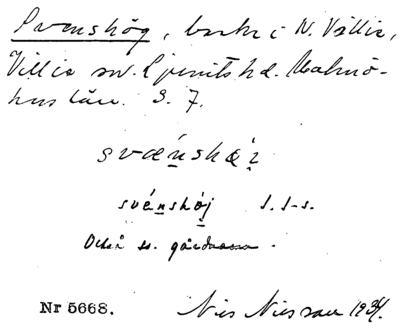 Svenshög, backe i N. Villie,
Villie sn. Ljunits hd. Malmö-
hus län. S. 7.
svænshøi
svénshöj
Också ss. gårdnamn.
Nr 5668.
Nils Nilsson 1934.